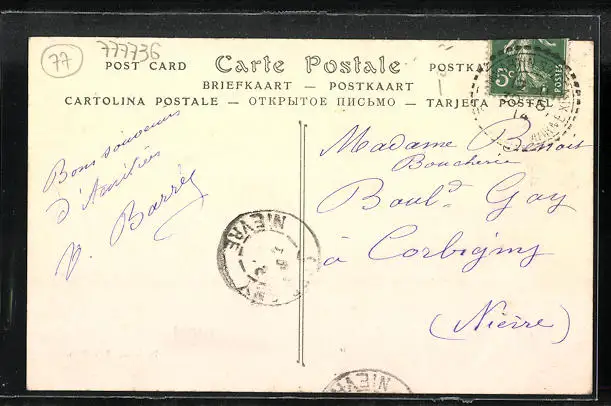 77
777736
POST CARD Carte Postale POSTKA
BRIEFKAART — POSTKAART
CARTOLINA POSTALE — ОТКРЫТОЕ ПИСЬМО — TARJETA POSTAL
5c
POSTES
Bons souvenirs
d'Amitiés
V. Barré
Madame Benoit
Boucherie
Boul.d Gay
à Corbigny
(Nièvre)
NIÈVRE
NIÈVRE